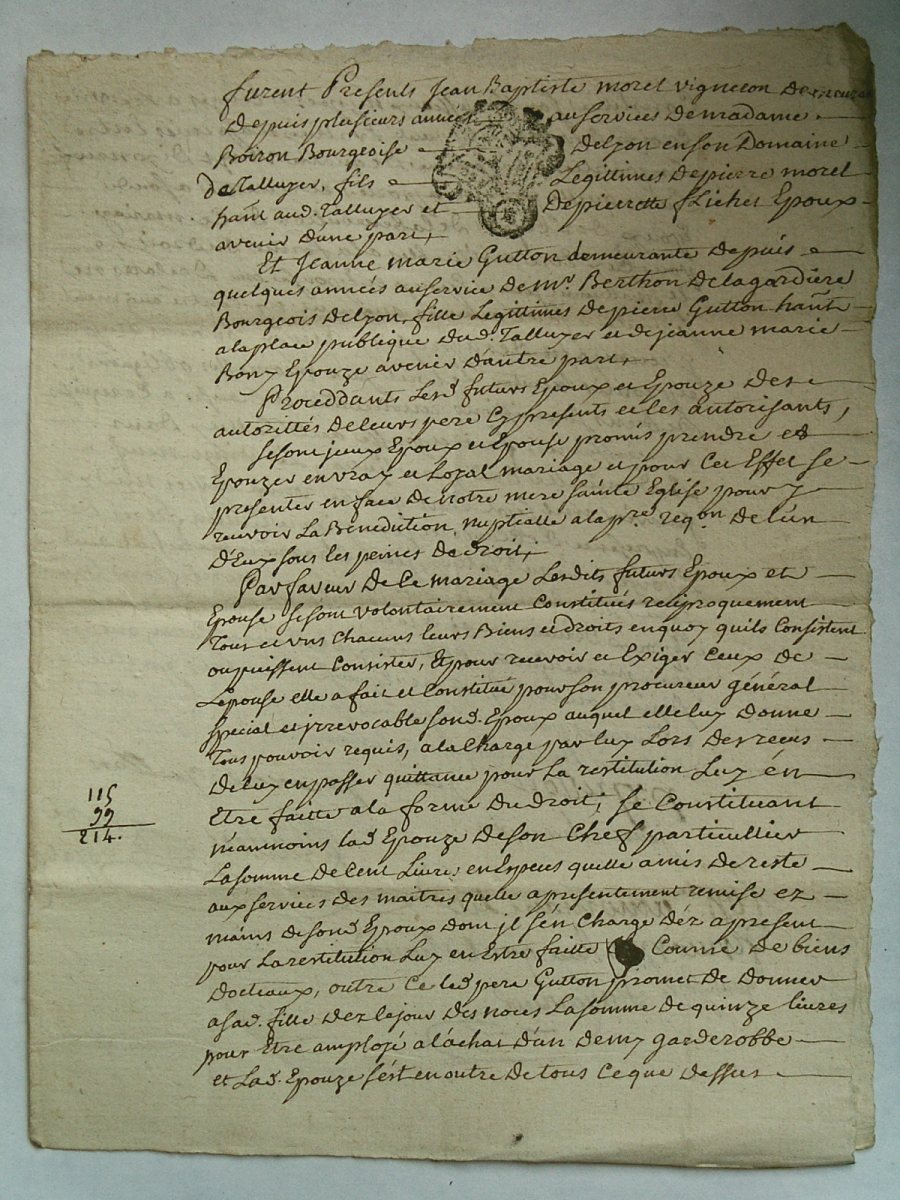 furent Presents Jean Baptiste morel vigneron Demeurant
Depuis plusieurs années au services De madame
Boiron Bourgeoise Delyon en son Domaine
de Talluyer, fils Legittimes De pierre morel
hant aud. Talluyer et De pierrette flichet Epoux
avenir d'une part,
Et Jeanne marie Gutton demeurante Depuis
quelques années au service De mr. Berthon De la gardiere
Bourgeois Delyon, fille Legittimes De pierre Gutton hant
a la place publique Dud. Talluyer et de jeanne marie
Bony Epouze avenir D'autre part,
Proceddants Lesd. futurs Epoux et Epouze Des
autorittés De leurs pere Cy presents et les autorisants,
se sont jceux Epoux et Epouse promis prendre et
Epouzer en vray et Loyal mariage et pour Cet Effet se
presenter en face De notre mere sainte Eglise pour y
recevoir La Bénédiction nuptialle a la pre. reqon. De l'un
D'Eux sous les peines De droit,
Par faveur De Ce mariage Lesdits futurs Epoux et
Epouse se sont volontairement Constitués reciproquement
Tous et uns Chacuns leurs Biens et droits en quoy quils Consistent
ou puissent Consister, Et pour recevoir et Exiger Ceux de
L'epouse elle a fait et Constitué pour son procureur général
special et jrrevocable sond. Epoux auquel elle luy Donne
Tous pouvoir requis, a la Charge par luy Lors Des recus
De luy en passer quittance pour La restitution Luy én
Etre faitte a la forme Du Droit, se Constituant
néanmoins lad. Epouze De son Chef particullier
La somme De Cent Livres en Especes quelle a mis De reste
aux services Des maitres quelle a presentement remise ez
mains De sond. Epoux Dont jl s'én Charge Déz a present
pour La restitution Luy en Estre faitte Comme De biens
Docteaux, outre Ce led. pere Gutton promet De Donner
a sad. fille Dez le jour Des noces La somme De quinze livres
pour Etre amployé a l'áchat D'un Demy garderobbe
et Lad. Epouze s'ést en outre De tous Ce que Dessus
115
99
214.